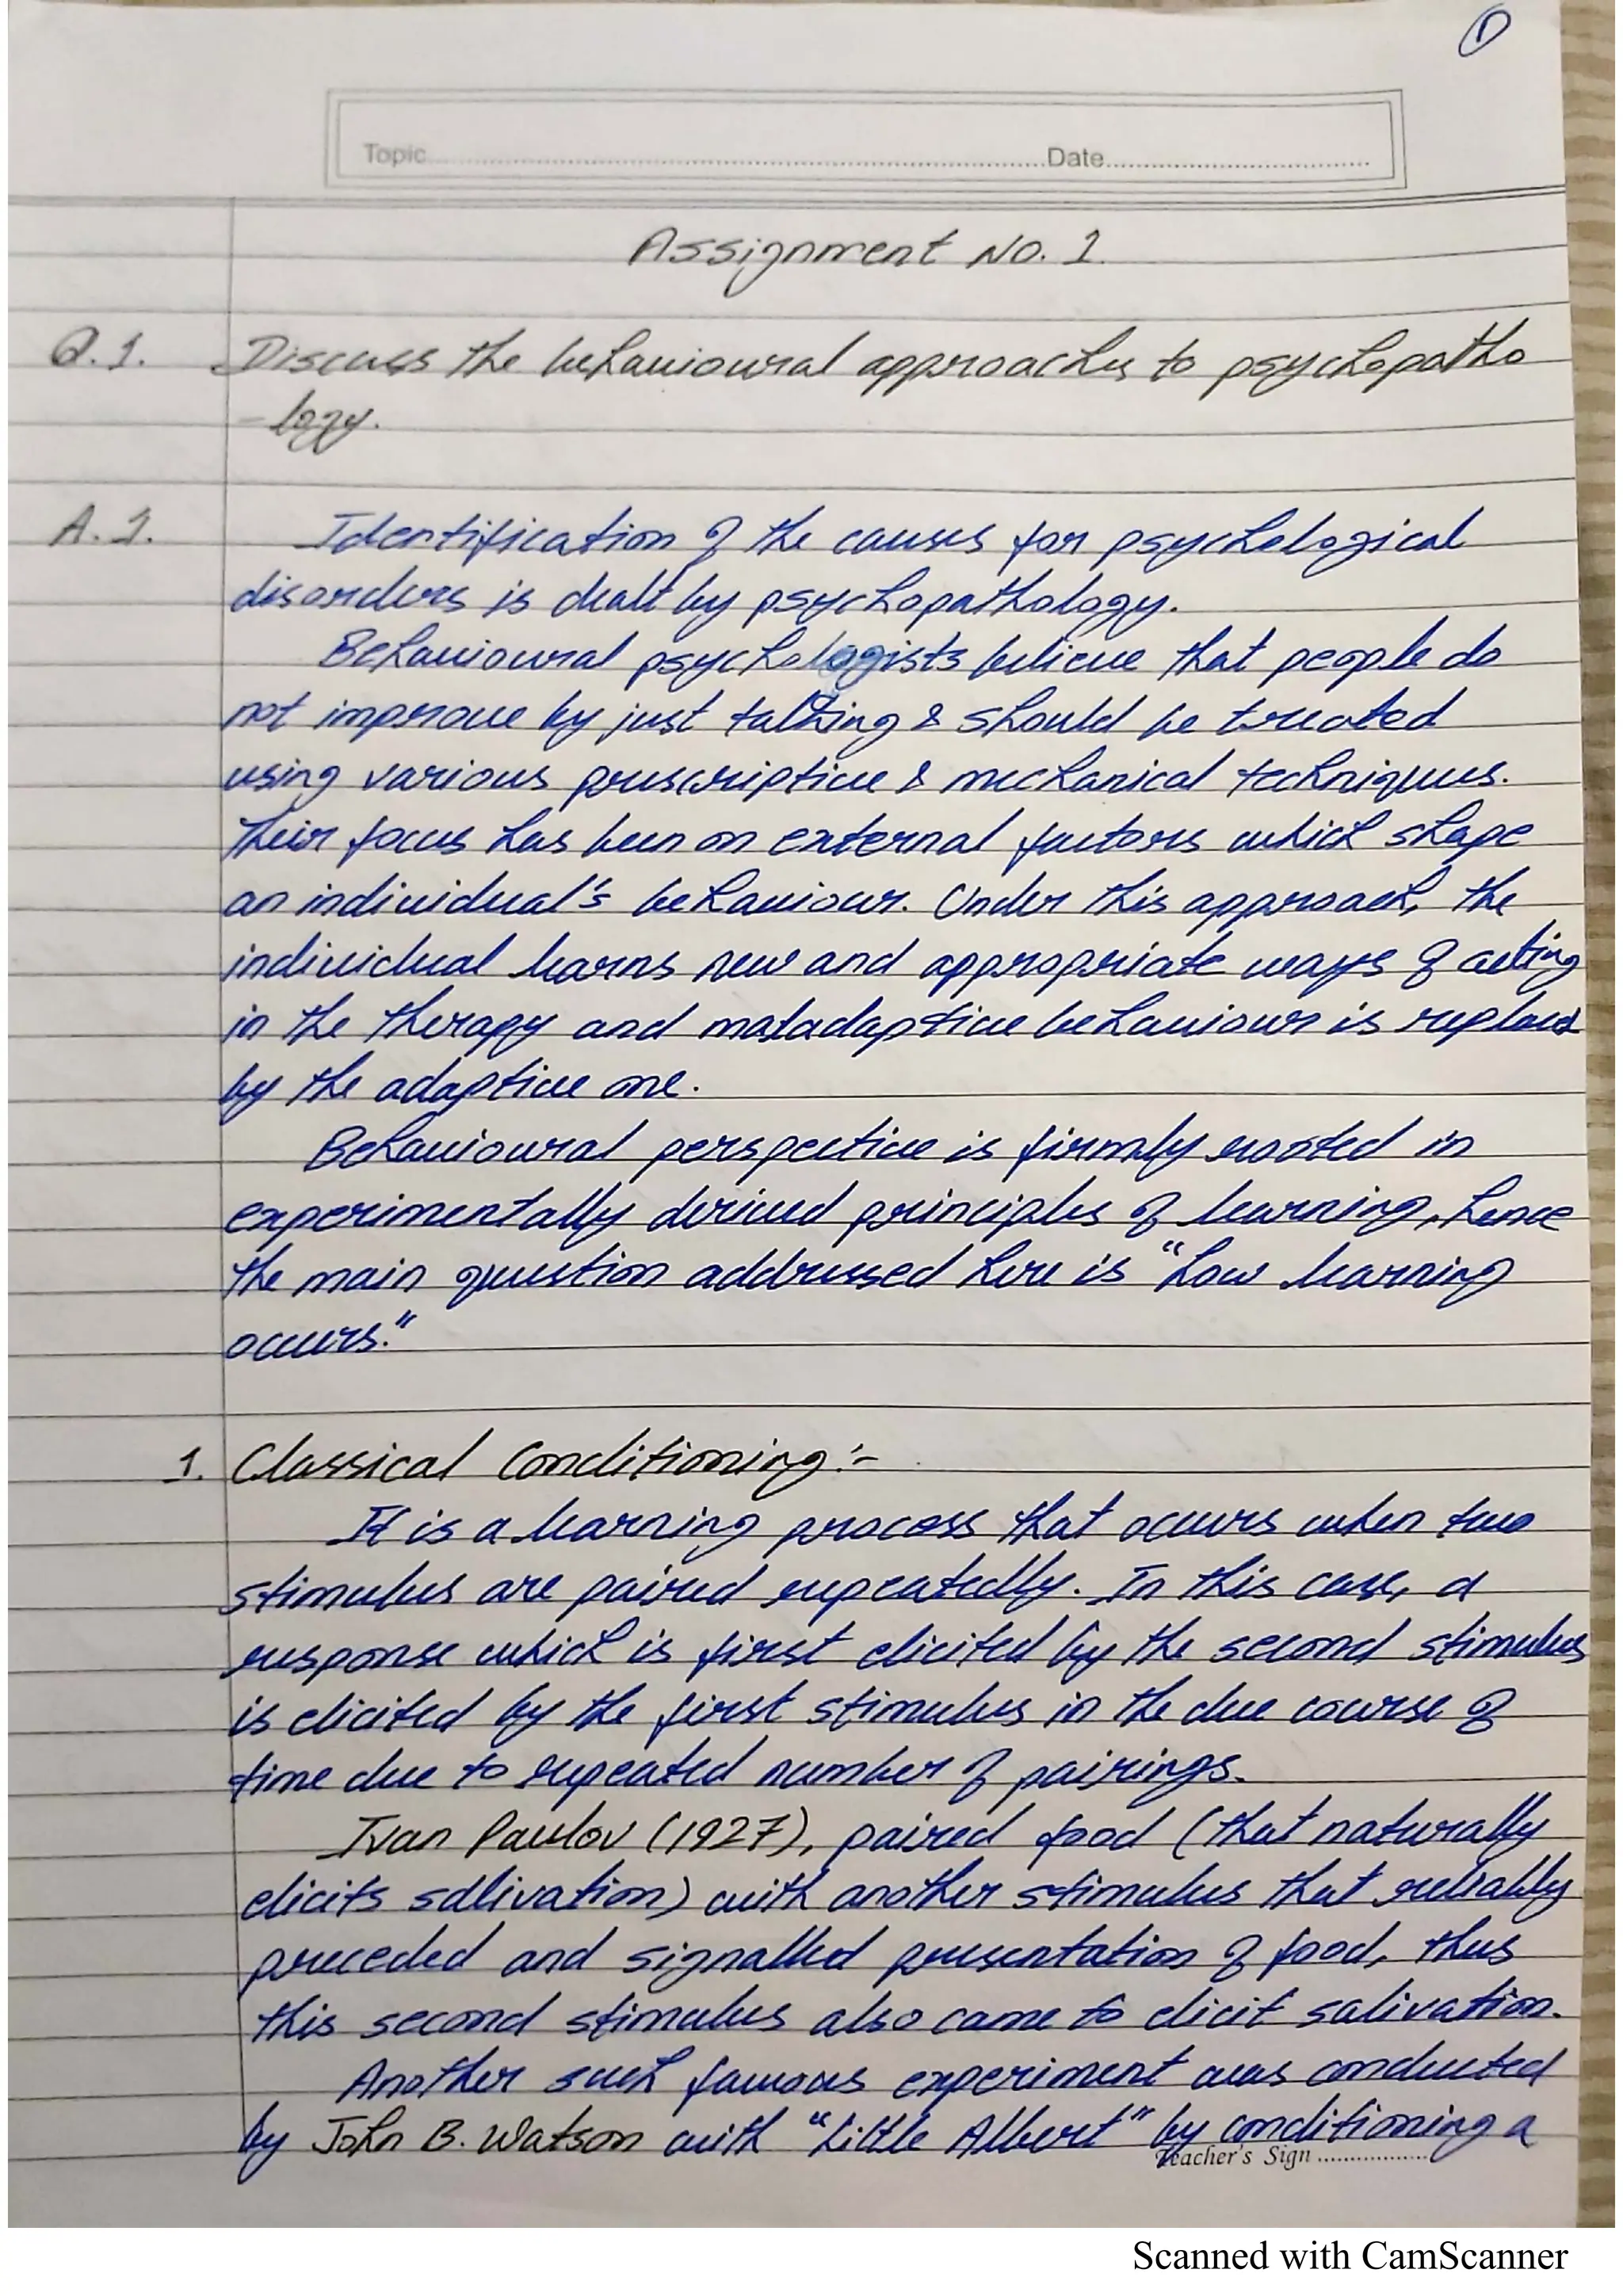 1
Topic..............................Date..............................
Assignment No. 1.
Q.1. Discuss the behavioural approaches to psychopatho
-logy.
A.1. Identification of the causes for psychological
disorders is dealt by psychopathology.
Behavioural psychologists believe that people do
not improve by just talking & should be treated
using various prescriptive & mechanical techniques.
Their focus has been on external factors which shape
an individual's behaviour. Under this approach, the
individual learns new and appropriate ways of acting
in the therapy and maladaptive behaviour is replaced
by the adaptive one.
Behavioural perspective is firmly rooted in
experimentally derived principles of learning, hence
the main question addressed here is "how learning
occurs."
1. Classical Conditioning:-
It is a learning process that occurs when two
stimulus are paired repeatedly. In this case, a
response which is first elicited by the second stimulus
is elicited by the first stimulus in the due course of
time due to repeated number of pairings.
Ivan Pavlov (1927), paired food (that naturally
elicits salivation) with another stimulus that reliably
preceded and signalled presentation of food, thus
this second stimulus also came to elicit salivation.
Another such famous experiment was conducted
by John B. Watson with "Little Albert" by conditioning a
Teacher's Sign ..................
Scanned with CamScanner